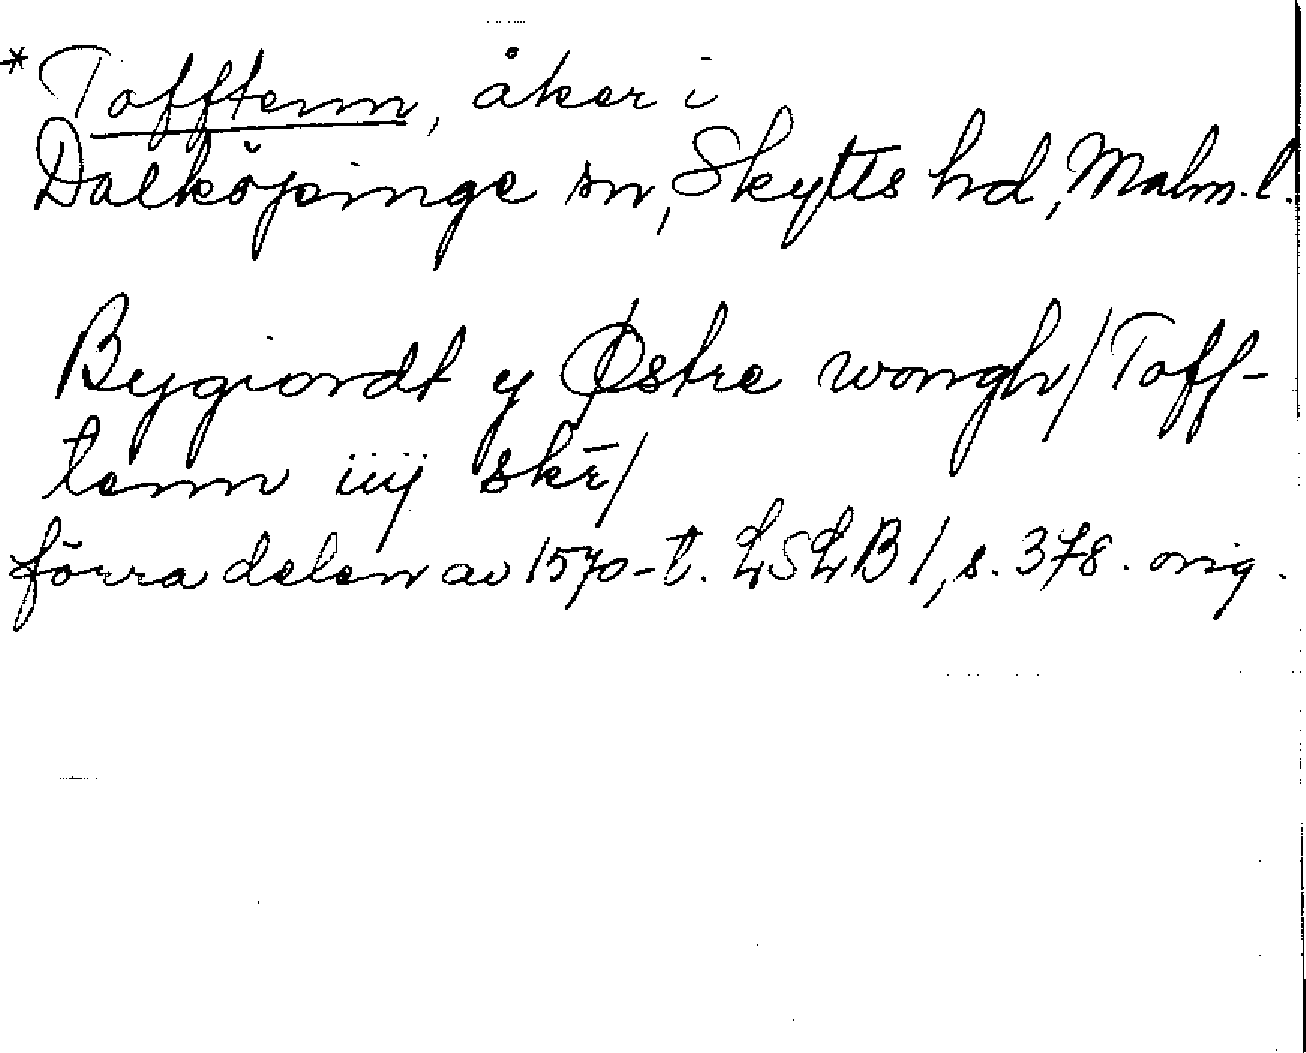 *Tofftenn, åker i
Dalköpinge sn, Skytts hd, Malm. l.
Bygiordt y Østre wongh/Toff-
tenn iiij skr̄/
förra delen av 1570-t. LSLB 1, s. 378. orig.